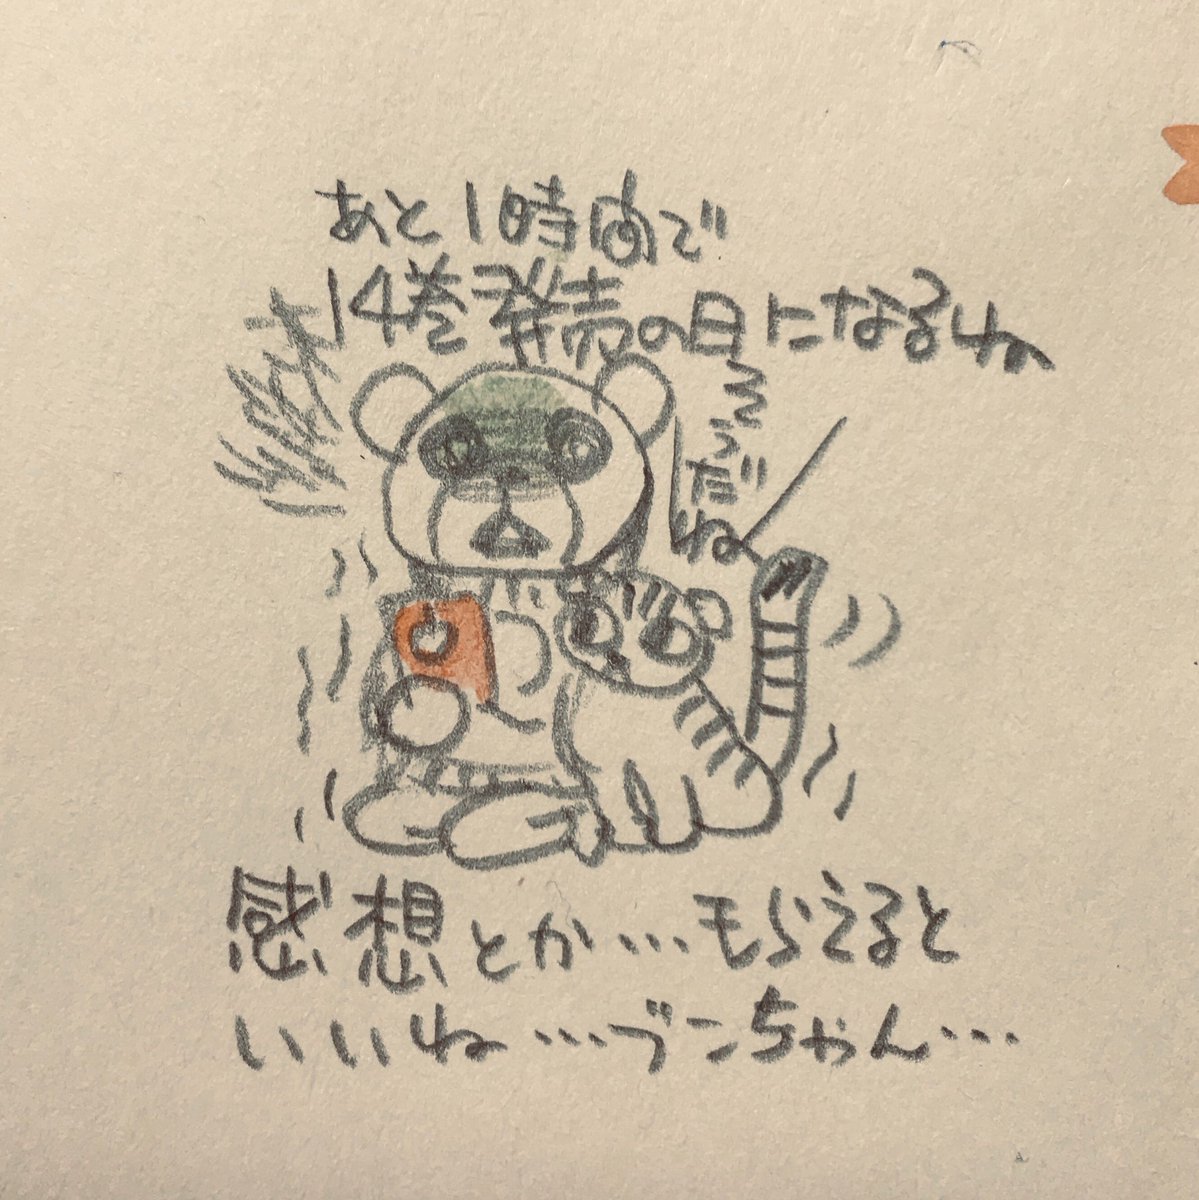 あと1時間で
14巻発売の日になるね
そうだね
感想とか…もらえると
いいね…ブンちゃん…